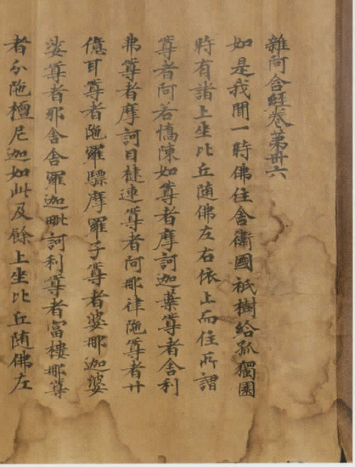 雜阿含經卷第卅六
如是我聞一時佛住舍衛國祇樹給孤獨園
時有諸上坐比丘随佛左右依上而住所謂
尊者阿若憍陳如尊者摩訶迦葉尊者舍利
弗尊者摩訶目揵連尊者阿那律陁尊者廿
億耳尊者陁羅驃摩羅子尊者婆那迦婆
娑尊者耶舍舍羅迦毗訶利尊者富樓那尊
者分陁檀尼迦如此及餘上坐比丘随佛左